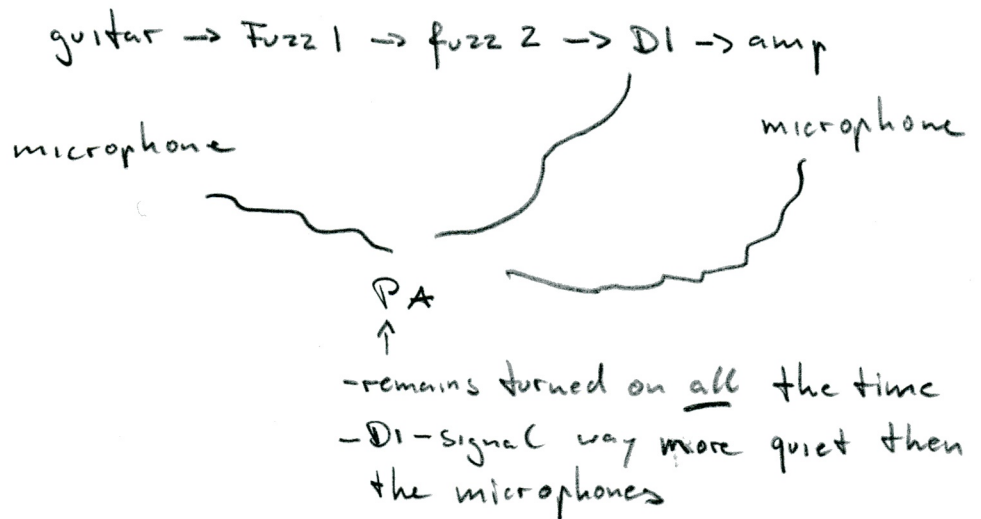 guitar → Fuzz 1 → fuzz 2 → DI → amp
microphone
microphone
PA
↑
-remains turned on all the time
-DI-signal way more quiet then
the microphones